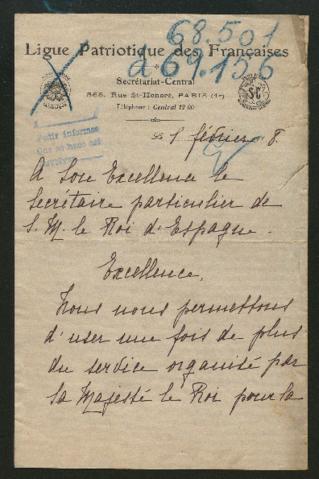 68.501
a 69.156
Ligue Patriotique des Françaises
Secrétariat-Central
368, Rue St-Honoré, PARIS (1er)
Téléphone : Central 12 60
Le 1 février 8.
A Son Excellence le
Secrétaire particulier de
S. M. le Roi d'Espagne.
Excellence,
Nous nous permettons
d'user une fois de plus
du service organisé par
Sa Majesté le Roi pour la